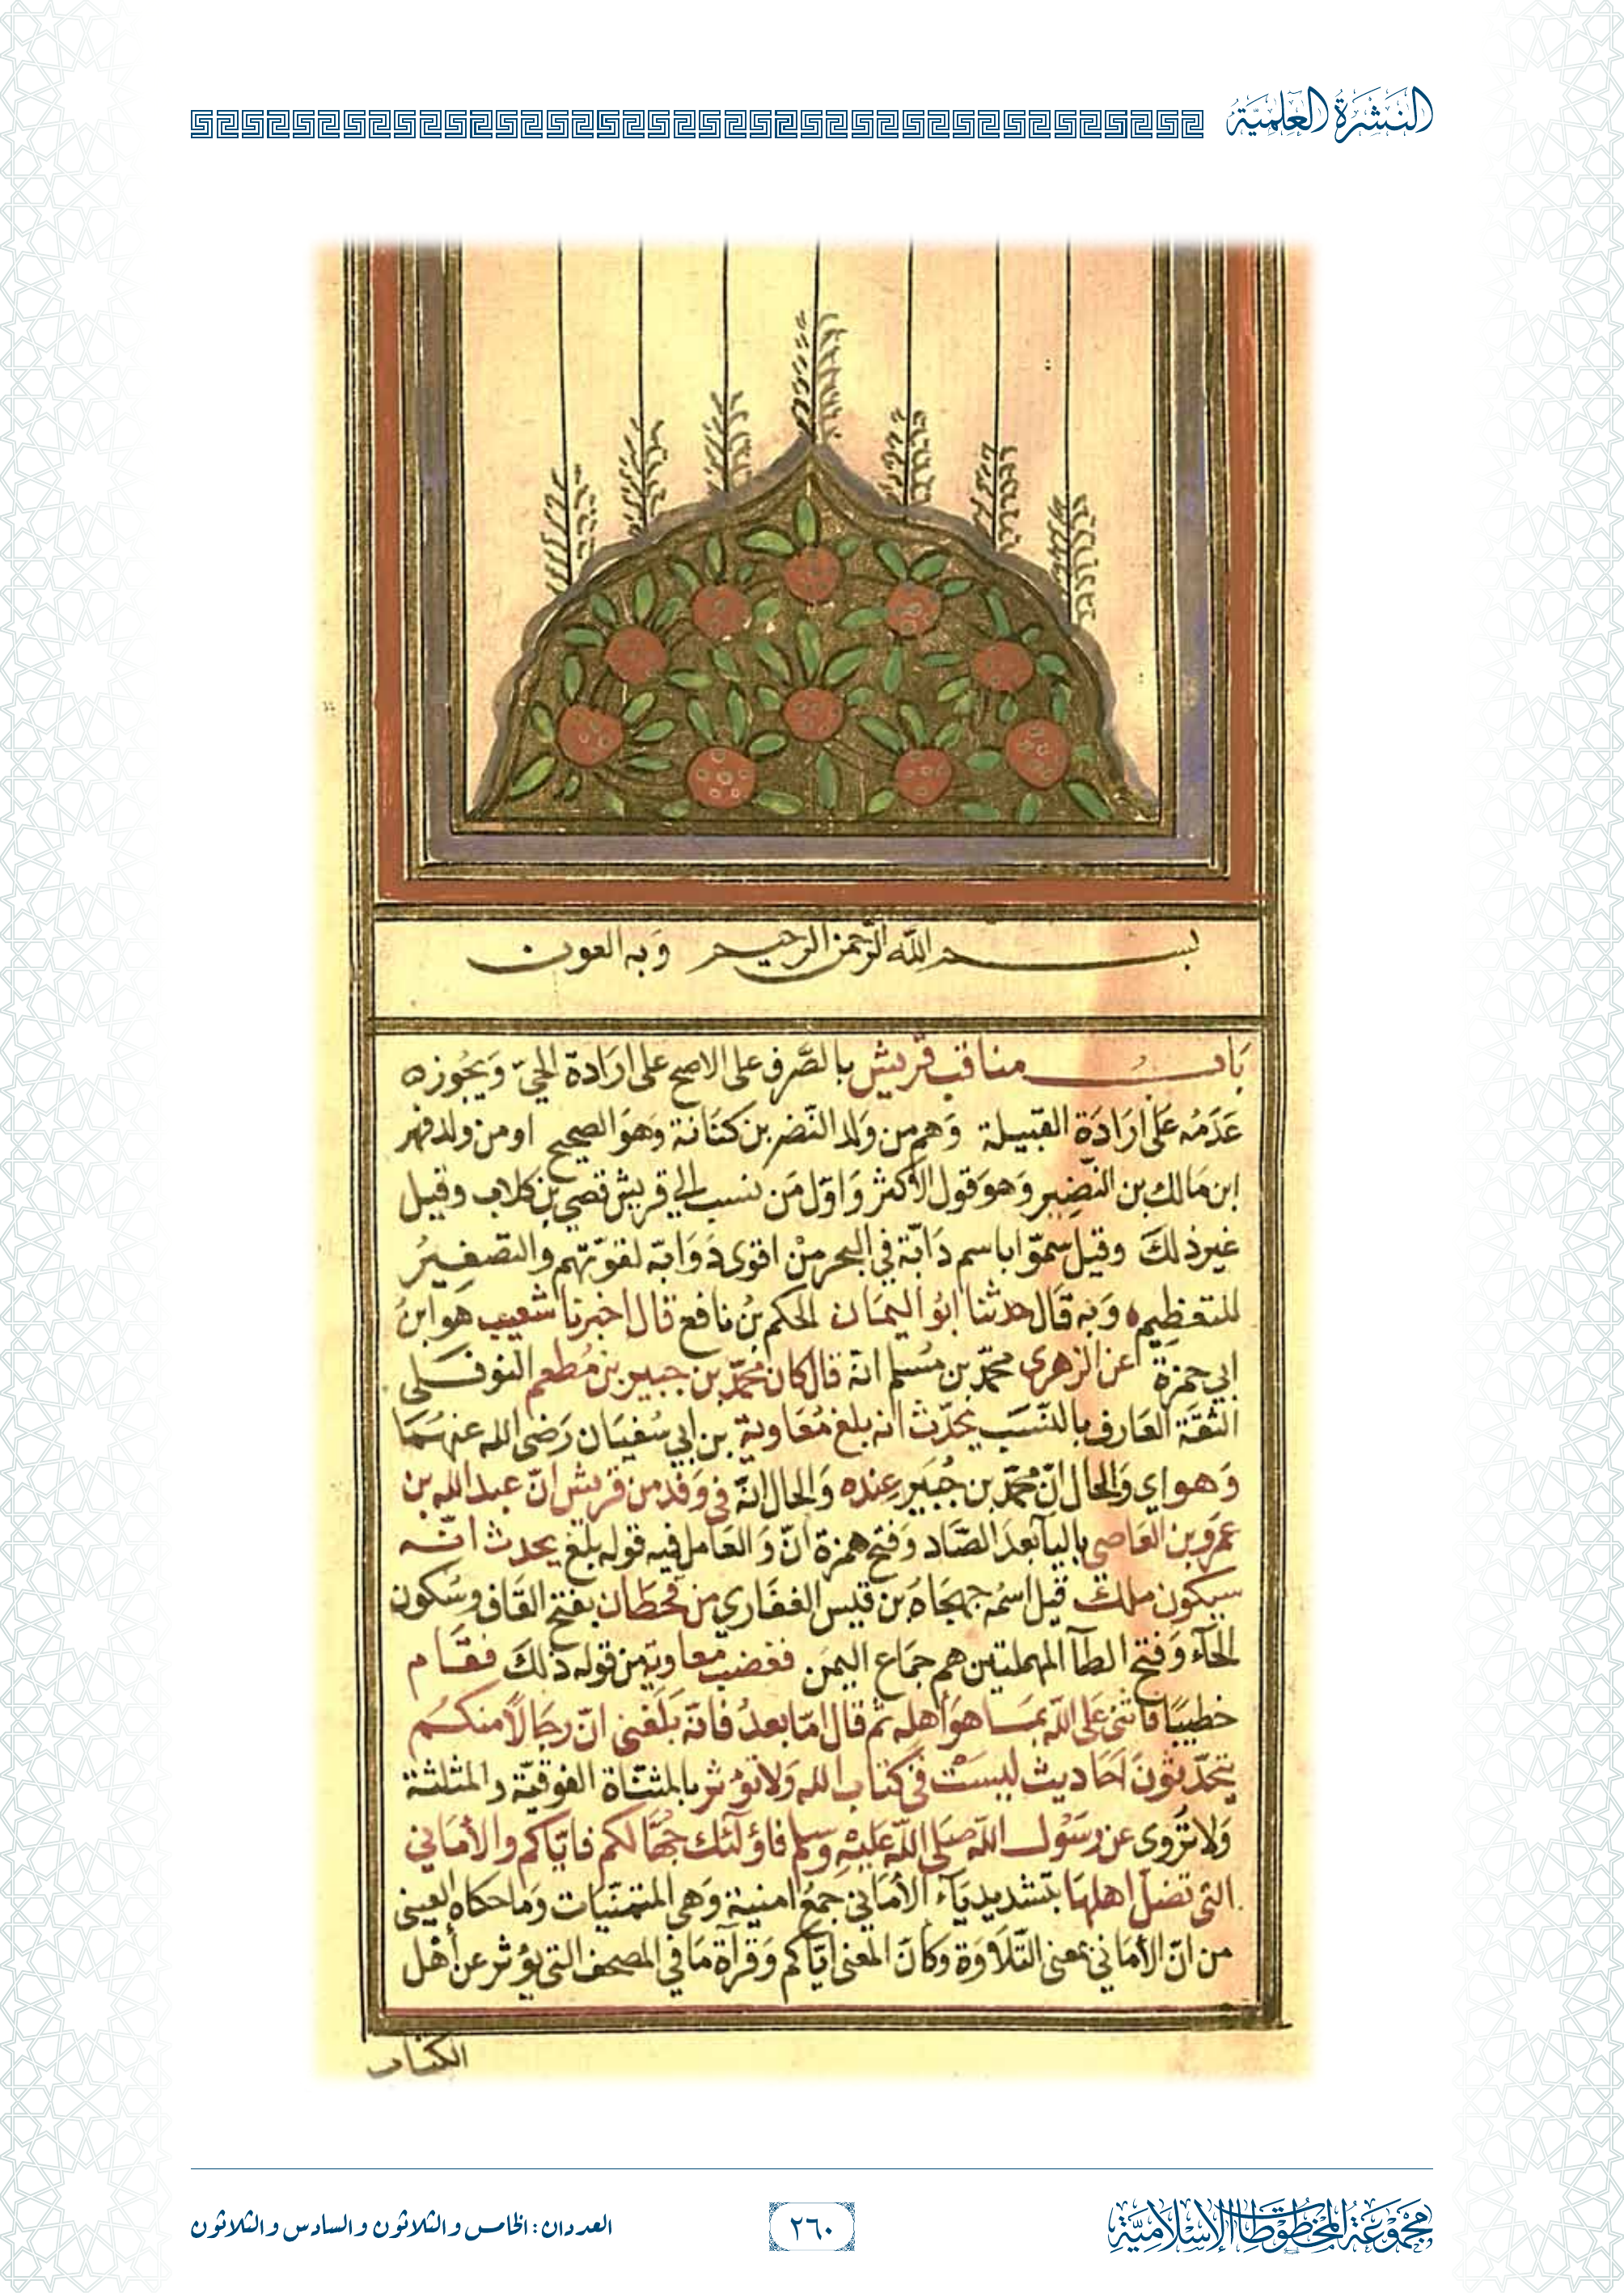 النشرة العلمية
بسم الله الرحمن الرحيم وبه العون
باب مناقب قريش بالصَّرف على الاصح على ارادة الحيّ وَيجُوزه
عَدَمُه عَلى ارَادَة القبيلة وَهم من وَلد النَّضر بن كنَانة وَهوَ الصحيح او من ولد فهر
ابن مَالك بن النّضِير وَهوَ قول الأكثر وَاوّل مَن نسب الي قريش قصي بن كلاب وقيل
غير ذلكَ وقيل سمّوا باسم دَابّة في البحر مِنْ اقوى دَوَابّه لقوّتهم والتصغيرُ
للتعظِيم وَبه قَال حدثنا ابوُ اليمَان الحكم بنُ نافع قال اخبرنا شعيب هَو ابنُ
ابي حمزة عن الزهري محمّد بن مُسلم انهّ قال كان محمَّد بن جبير بن مُطعم النوفلى
الثقة العَارف بالنّسَب يحَدّث انه بلغ مُعَاوية بن ابي سُفيَان رَضى الله عنهُمَا
وَهو اي وَالحال انّ محمّد بن جُبَير عِنده وَالحال انّهَ فى وَفد من قريش انّ عبد الله بن
عمَرو بن العَاصي باليآ بعدَ الصَّاد وَفتح همزة انّ وَالعَامل فيه قوله بلغ يحدث انّه
سيكون ملك قيل اسمُه جهجَاهُ بن قيس الغفَاري من قحطَان بفتح القَاف وسُكون
الحَآء وَفتح الطآ المهملتين هم جمَاع اليمَن فغضب معاوية من قوله ذلكَ فقَام
خطيبًا فاثنى عَلى اللّه بمَا هوَ أهله ثم قال امّا بعدُ فانهّ بَلَغنى انّ رجَالاً منكم
يتحَدّثونَ احَاديث ليسَتْ فى كتاب الله وَلا تؤثر بالمثنّاة الفوقيّة والمثلثة
وَلا تُروى عن رسَوُل اللّه صَلى اللّه عَليْهِ وسلم فاؤلئك جهَّالكم فايّاكم والأمَاني
التى تضلّ اهلهَا بتشديد يَآء الأمَاني جمعُ امنية وَهى المتمنيَّات وَما حكاه العينى
من انّ الأمَاني بمعنى التّلَاوَة وكانّ المعنى ايّاكم وَقرآة مَا في المصحف التى يؤثر عن أهْل
الكتاب
مجموعة المخطوطات الإسلامية
٢٦٠
العددان: الخامس والثلاثون والسادس والثلاثون